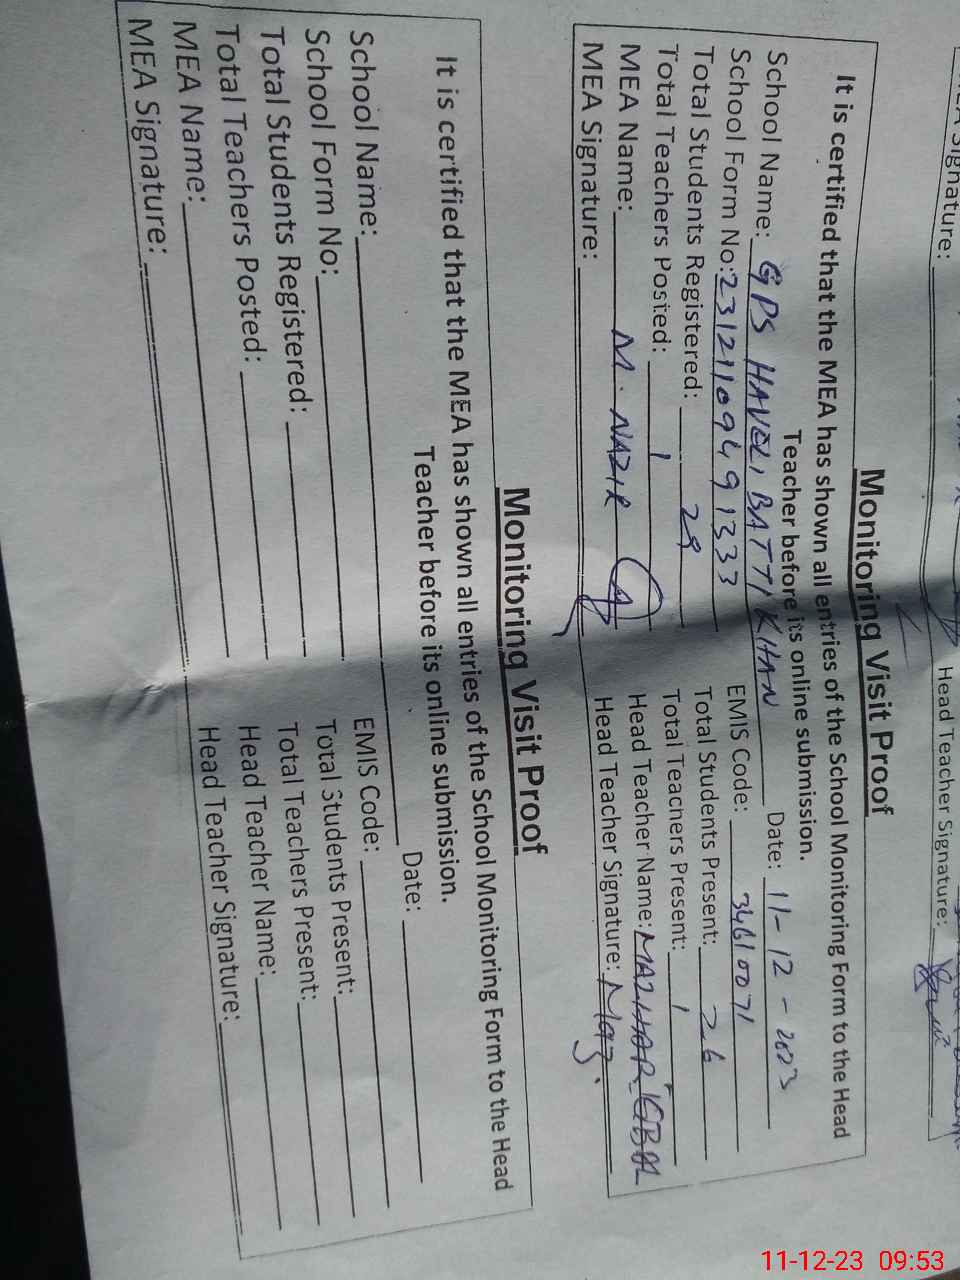 MEA Signature:
Head Teacher Signature:
Monitoring Visit Proof
It is certified that the MEA has shown all entries of the School Monitoring Form to the Head
Teacher before its online submission.
School Name: GPS HAVELI BATTI KHAN Date: 11-12-2023
School Form No: 23121109491333 EMIS Code: 34610071
Total Students Registered: 28 Total Students Present: 26
Total Teachers Posted: 1 Total Teachers Present: 1
MEA Name: M. NAZIR Head Teacher Name: MAZHAR IQBAL
MEA Signature: Head Teacher Signature:
Monitoring Visit Proof
It is certified that the MEA has shown all entries of the School Monitoring Form to the Head
Teacher before its online submission.
School Name: Date:
School Form No: EMIS Code:
Total Students Registered: Total Students Present:
Total Teachers Posted: Total Teachers Present:
MEA Name: Head Teacher Name:
MEA Signature: Head Teacher Signature:
11-12-23 09:53